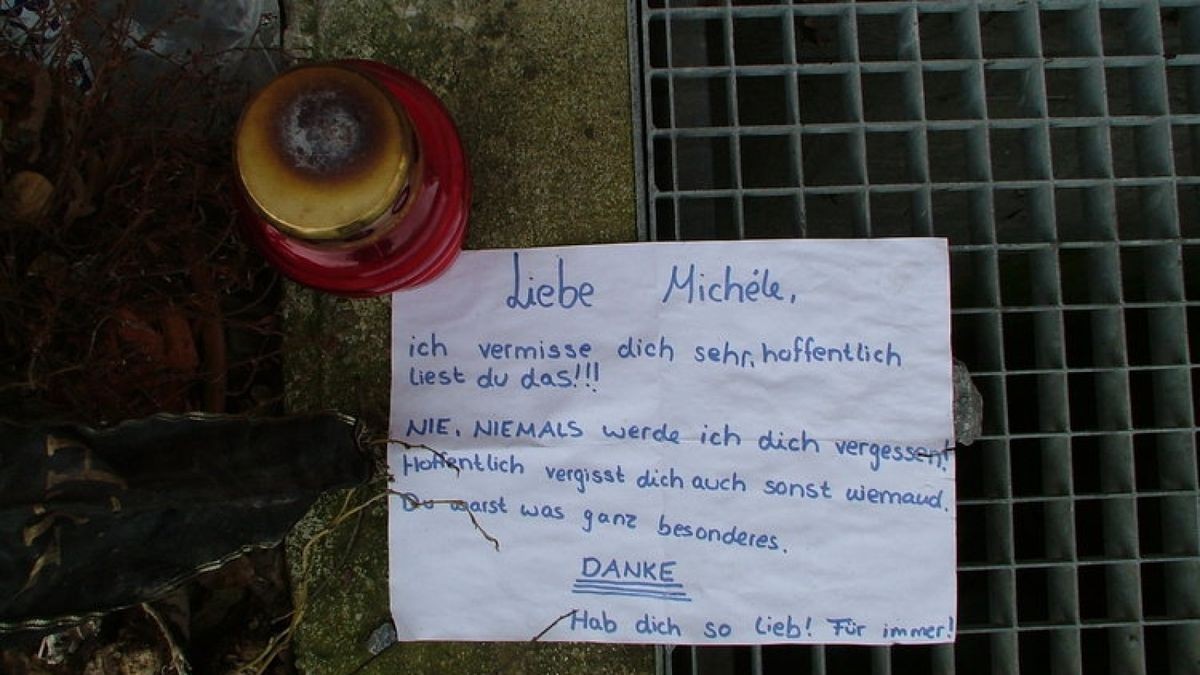 Liebe Michéle,
ich vermisse dich sehr, hoffentlich
liest du das!!!
NIE, NIEMALS werde ich dich vergessen!
Hoffentlich vergisst dich auch sonst niemand.
Du warst was ganz besonderes.
DANKE
Hab dich so lieb! Für immer!